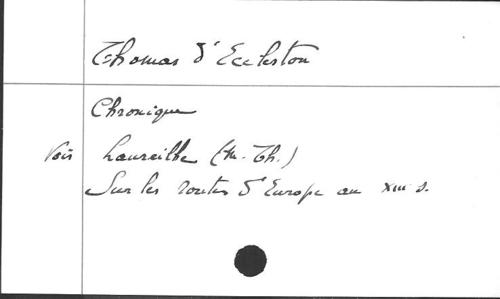 Thomas d'Eccleston
Chronique
Voir Laureilhe (M. Th.)
Sur les routes d'Europe au XIII s.